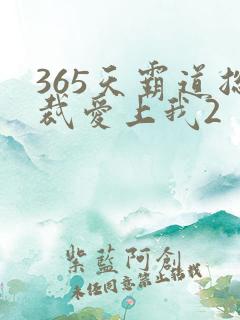 365天霸道总
裁爱上我2
紫藍阿創
未任同意禁止转载